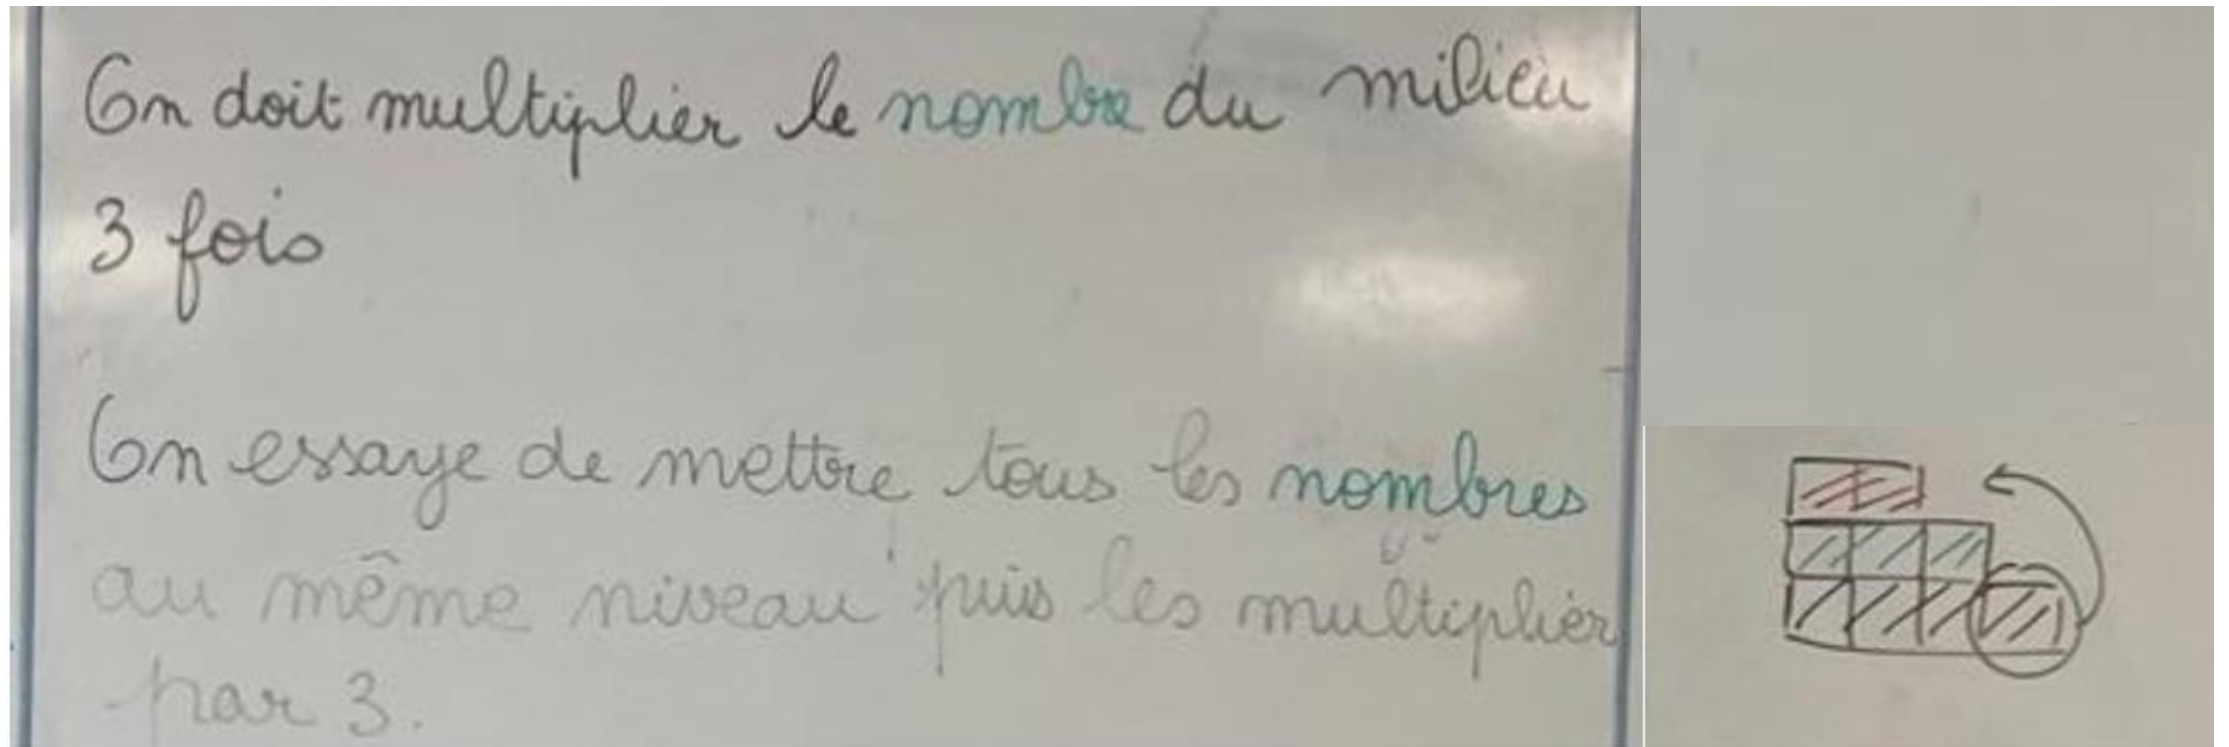 On doit multiplier le nombre du milieu
3 fois
On essaye de mettre tous les nombres
au même niveau puis les multiplier
par 3.